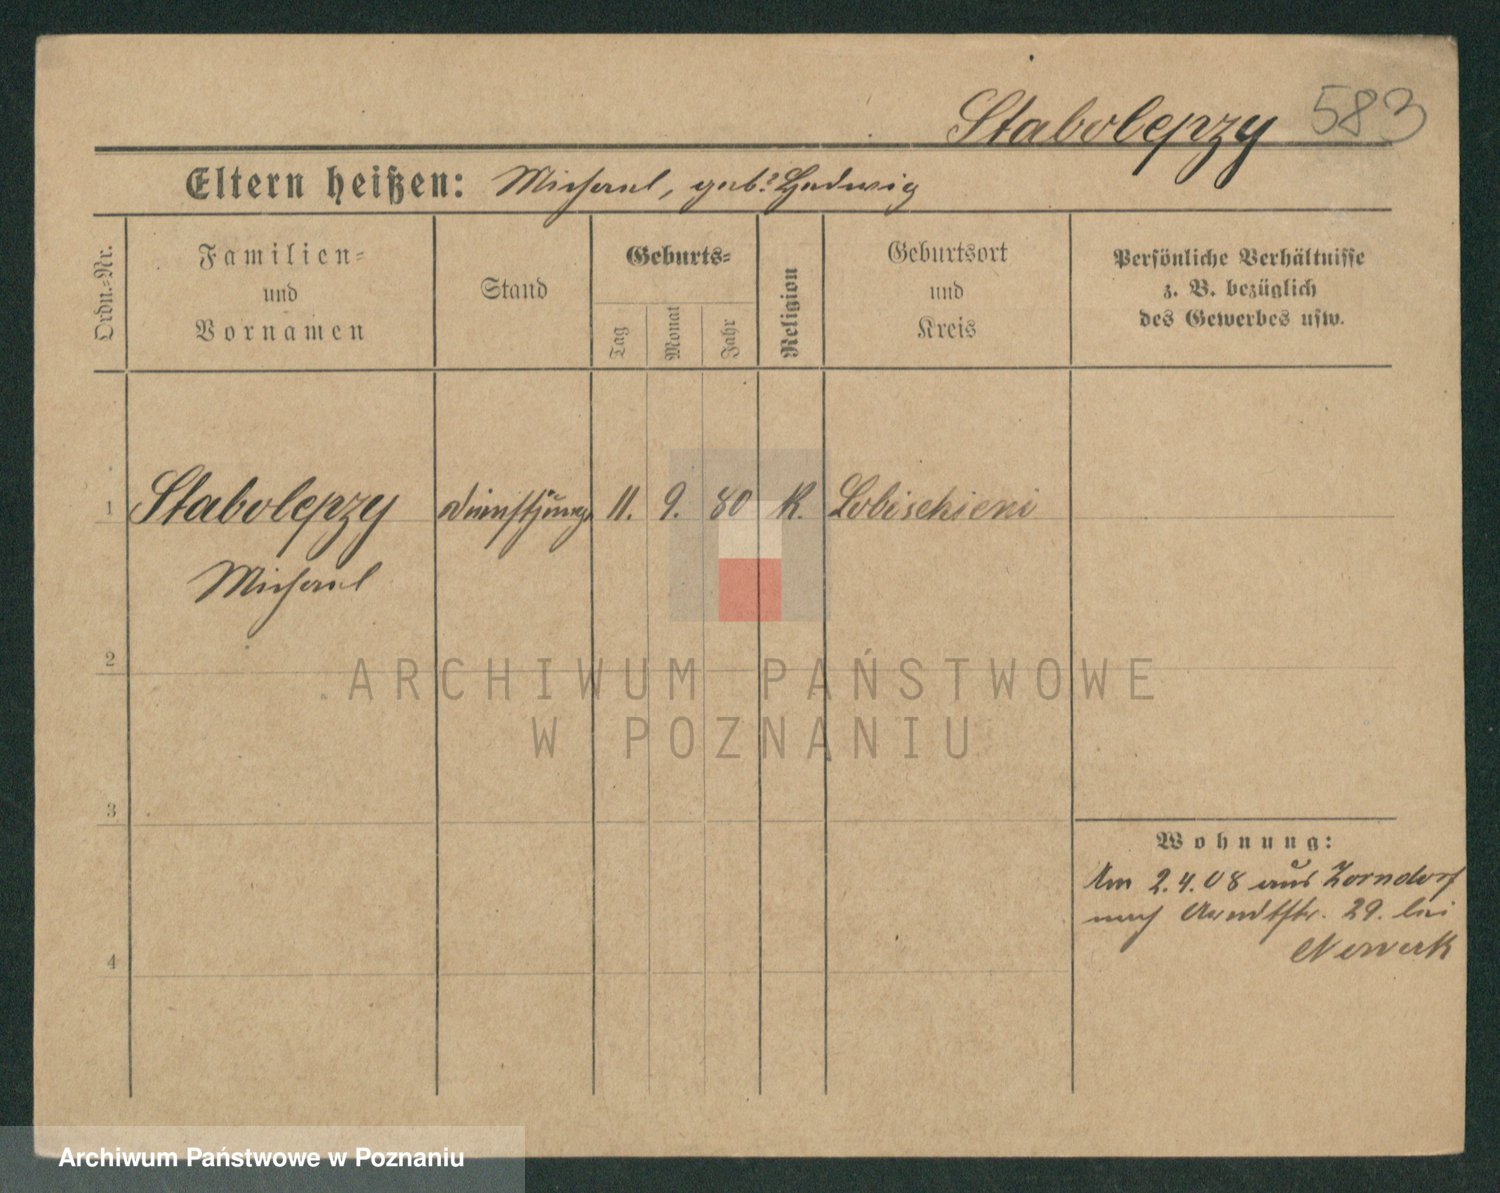 Stabolepzy 583
Eltern heißen: Michael, geb? Hedwig
Ordn.=Nr.
Familien=
und
Vornamen
Stand
Geburts=
Tag
Monat
Jahr
Religion
Geburtsort
und
Kreis
Persönliche Verhältnisse
z. B. bezüglich
des Gewerbes usw.
1 Stabolepzy Dienstjunge 11. 9. 80 K. Lobischieni
Michael
2
ARCHIWUM PAŃSTWOWE
W POZNANIU
3
Wohnung:
Am 2.4.08 aus Zorndorf
nach Arndtstr. 29. bei
Nowack
4
Archiwum Państwowe w Poznaniu